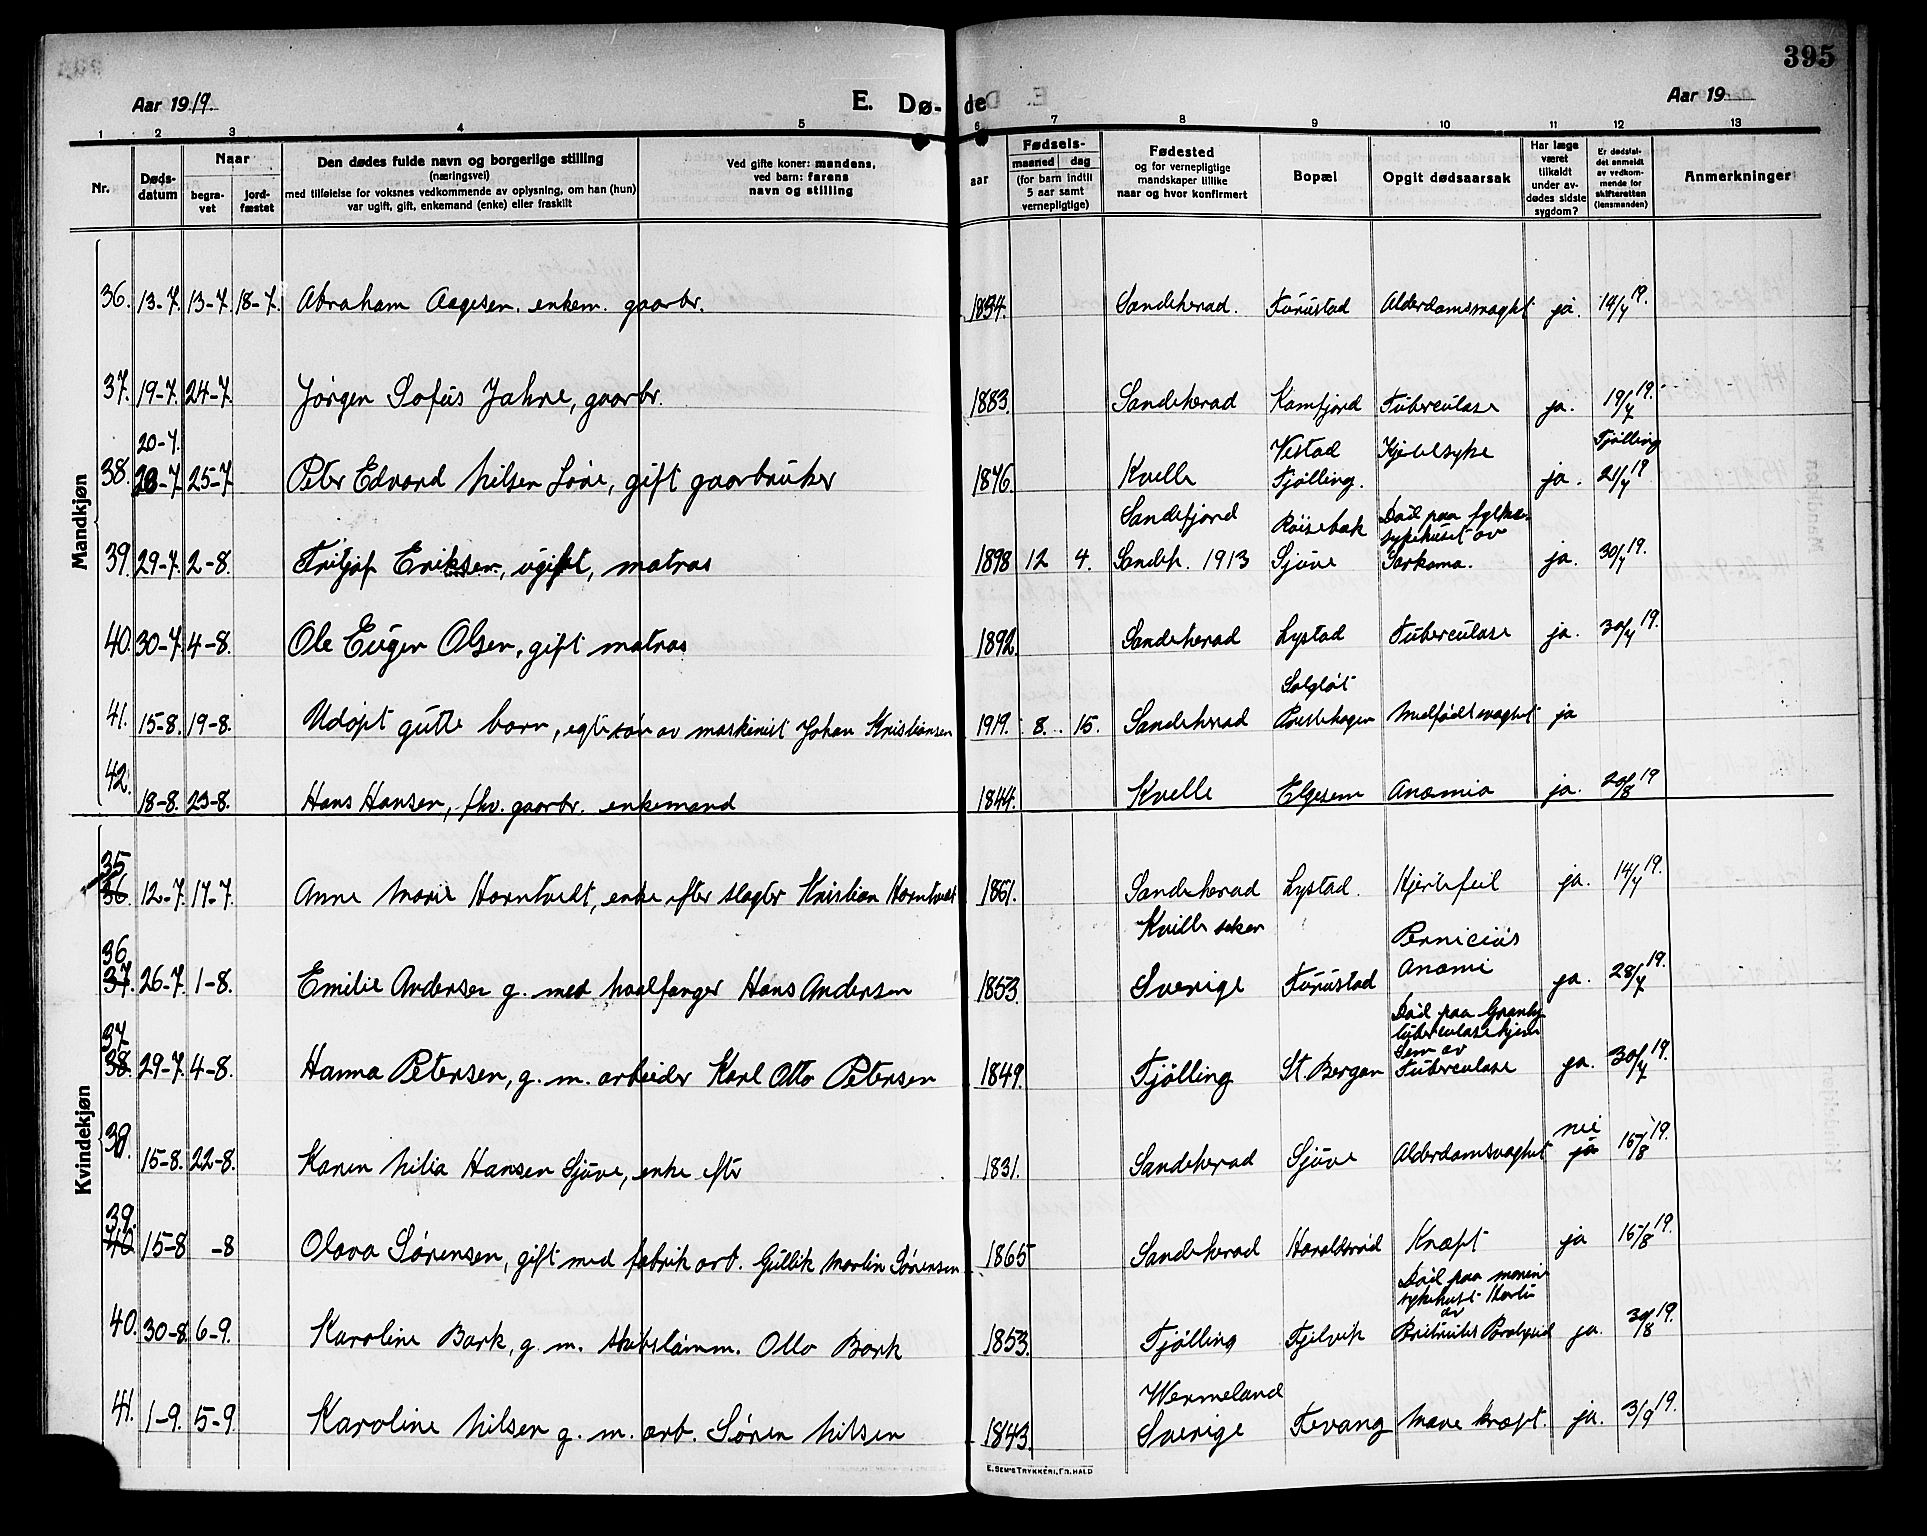 395
Aar 1919.
E. Dø-
de
Aar 19
1 2 3 4 5 6 7 8 9 10 11 12 13
Nr.
Døds-
datum
Naar
begra-
vet
jord-
fæstet
Den dødes fulde navn og borgerlige stilling
(næringsvei)
med tilføielse for voksnes vedkommende av oplysning, om han (hun)
var ugift, gift, enkemand (enke) eller fraskilt
Ved gifte koner: mandens,
ved barn: farens
navn og stilling
aar
Fødsels-
maaned dag
(for barn indtil
5 aar samt
vernepligtige)
Fødested
og for vernepligtige
mandskaper tillike
naar og hvor konfirmert
Bopæl
Opgit dødsaarsak
Har læge
været
tilkaldt
under av-
dødes sidste
sygdom?
Er dødsfal-
det anmeldt
av vedkom-
mende for
skifteretten
(lensmanden)
Anmerkninger
Mandkjøn
36. 13-7. 13-7. 18-7. Abraham Aagesen. enkem. gaarbr. 1834. Sandeherad. Furustad Alderdomsvaghet ja. 14/7 19.
37. 19-7. 24-7. Jørgen Sofus Jahre, gaarbr. 1883. Sandeherad Kamfjord Tuberculose ja. 19/7 19.
20-7. Vestad Hjertesyke Tjølling
38. 25-7. Peter Edvard Nilsen Løve, gift gaarbruker 1846. Kvelle Tjølling. ja. 21/7 19
Sandefjord Røisebak Død paa fylkes-
sykehuset av
39. 29-7. 2-8. Fritjof Eriksen, ugift, matros 1898 12 4. Sandeh. 1913 Sjuve Sarkoma. ja. 30/7 19.
40. 30-7. 4-8. Ole Eugen Olsen, gift matros 1892. Sandeherad Lystad Tuberculose ja. 30/7 19.
Solgløt
41. 15-8. 19-8. Udøpt gutte barn, egte søn av maskinist Johan Kristiansen 1919. 8. 15. Sandeherad Prestehagen Medfødt svaghet ja
42. 18-8. 23-8. Hans Hansen, fhv. gaarbr. enkemand 1844. Kvelle Elgesem Anæmia ja. 20/8 19
Kvindekjøn
35
36. 12-7. 17-7. Anne Marie Horntvedt, enke efter slagter Kristian Horntvedt 1861. Sandeherad Lystad. Hjertefeil ja. 14/7 19.
Kville soken Perniciøs
36
37. 26-7. 1-8. Emilie Andersen g. med hvalfanger Hans Andersen 1853. Sverige Furustad Anæmi ja. 28/7 19.
Død paa Granly
tuberculosehjem
Sem av
37
38. 29-7. 4-8. Hanna Petersen, g. m. arbeider Karl Otto Petersen 1849. Tjølling St. Bergan Tuberculose ja. 30/7 19.
nei
38. 15-8. 22-8. Karen Nilia Hansen Sjuve, enke efter 1831. Sandeherad Sjuve Alderdomsvaghet ja 15/8 19.
39.
40 15-8 -8 Olava Sørensen, gift med fabrik arb. Gullik Martin Sørensen 1865 Sandeherad Haraldsrød Kræft ja 15/8 19.
Død paa
av
40. 30-8. 6-9. Karoline Bark, g. m. skibstømm. Otto Bark 1853. Tjølling Fjelvik ja. 30/8 19.
Wermeland
41. 1-9. 5-9. Karoline Nilsen g. m. arb. Søren Nilsen 1843. Sverige Fevang Mave kræft. ja. 3/9 19.
E. SEM'S TRYKKERI, FR.HALD